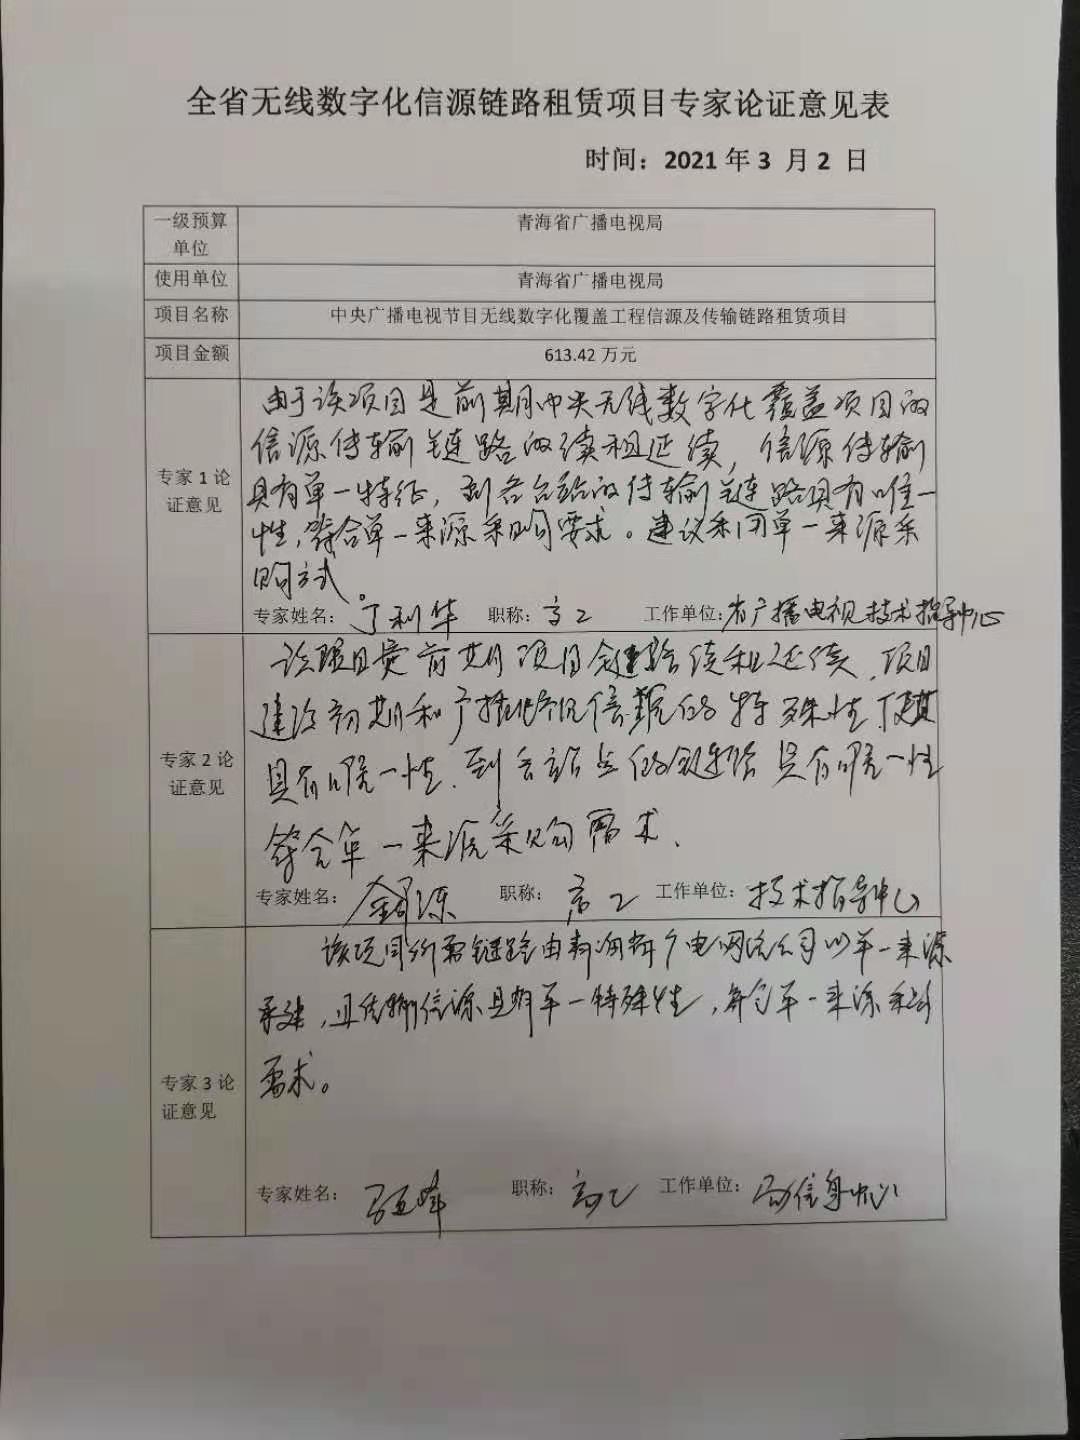 全省无线数字化信源链路租赁项目专家论证意见表
时间：2021 年 3 月 2 日
一级预算
单位
青海省广播电视局
使用单位
青海省广播电视局
项目名称
中央广播电视节目无线数字化覆盖工程信源及传输链路租赁项目
项目金额
613.42 万元
专家 1 论
证意见
由于该项目是前期中央无线数字化覆盖项目的
信源传输链路的续租延续，信源传输
具有单一特征，到各台站的传输链路具有唯一
性，符合单一来源采购要求。建议采用单一来源采
购方式。
专家姓名： 丁利华 职称：高工 工作单位：省广播电视技术指导中心
专家 2 论
证意见
该项目是前期项目链路续租延续，项目
建设前期和广播电视信源的特殊性
具有唯一性，到各站点的链路具有唯一性
符合单一来源采购需求。
专家姓名： 职称： 高工 工作单位：技术指导中心
专家 3 论
证意见
该项目所需链路由青海省广电网络公司以单一来源
承建，且传输信源具有单一特殊性，符合单一来源采购
需求。
专家姓名： 职称： 高工 工作单位： 局信息中心